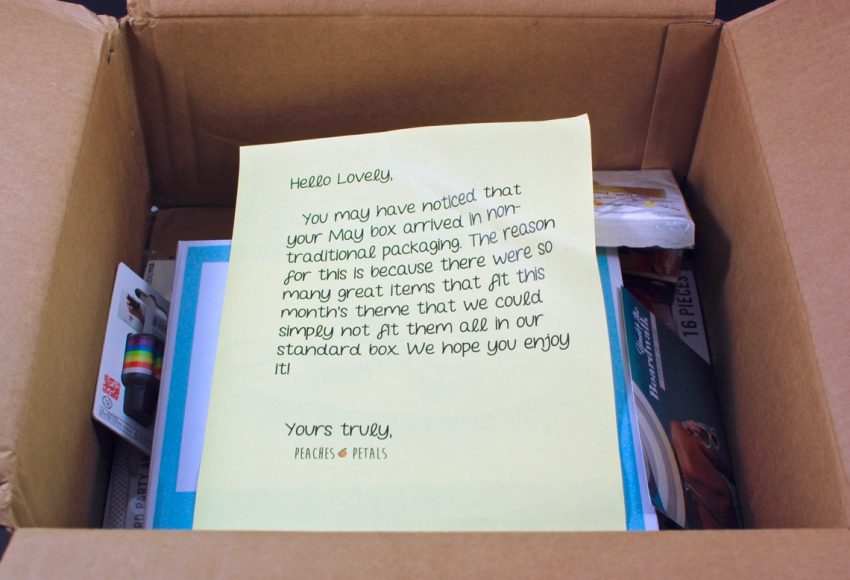 Hello Lovely,
You may have noticed that
your May box arrived in non-
traditional packaging. The reason
for this is because there were so
many great items that fit this
month's theme that we could
simply not fit them all in our
standard box. We hope you enjoy
it!
Yours truly,
PEACHES PETALS
16 PIECES
Boardwalk
RD PARTY